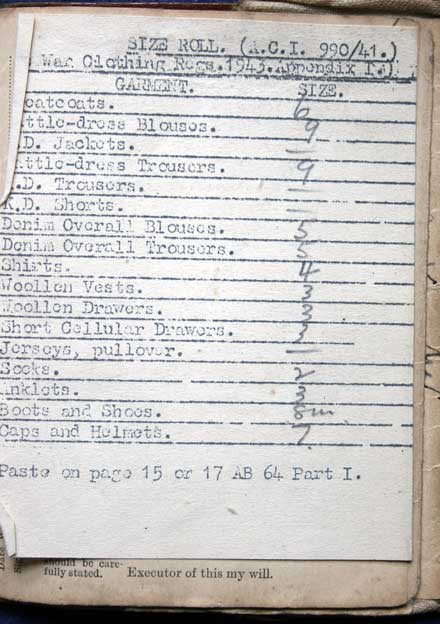 SIZE ROLL. (A.C.I. 990/41.)
War Clothing Regs.1943.Appendix I.)
GARMENT. SIZE.
eatcoats. 6
ttle-dress Blouses. 9
.D. Jackets. —
attle-dress Trousers. 9
.D. Trousers. —
K.D. Shorts. —
Denim Overall Blouses. 5
Denim Overall Trousers. 5
Shirts. 4
Woollen Vests. 3
Woollen Drawers. 3
Short Cellular Drawers. 3
Jerseys, pullover. —
Socks. 2
Anklets. 3
Boots and Shoes. 8m
Caps and Helmets. 7
Paste on page 15 or 17 AB 64 Part I.
should be care-
fully stated. Executor of this my will.